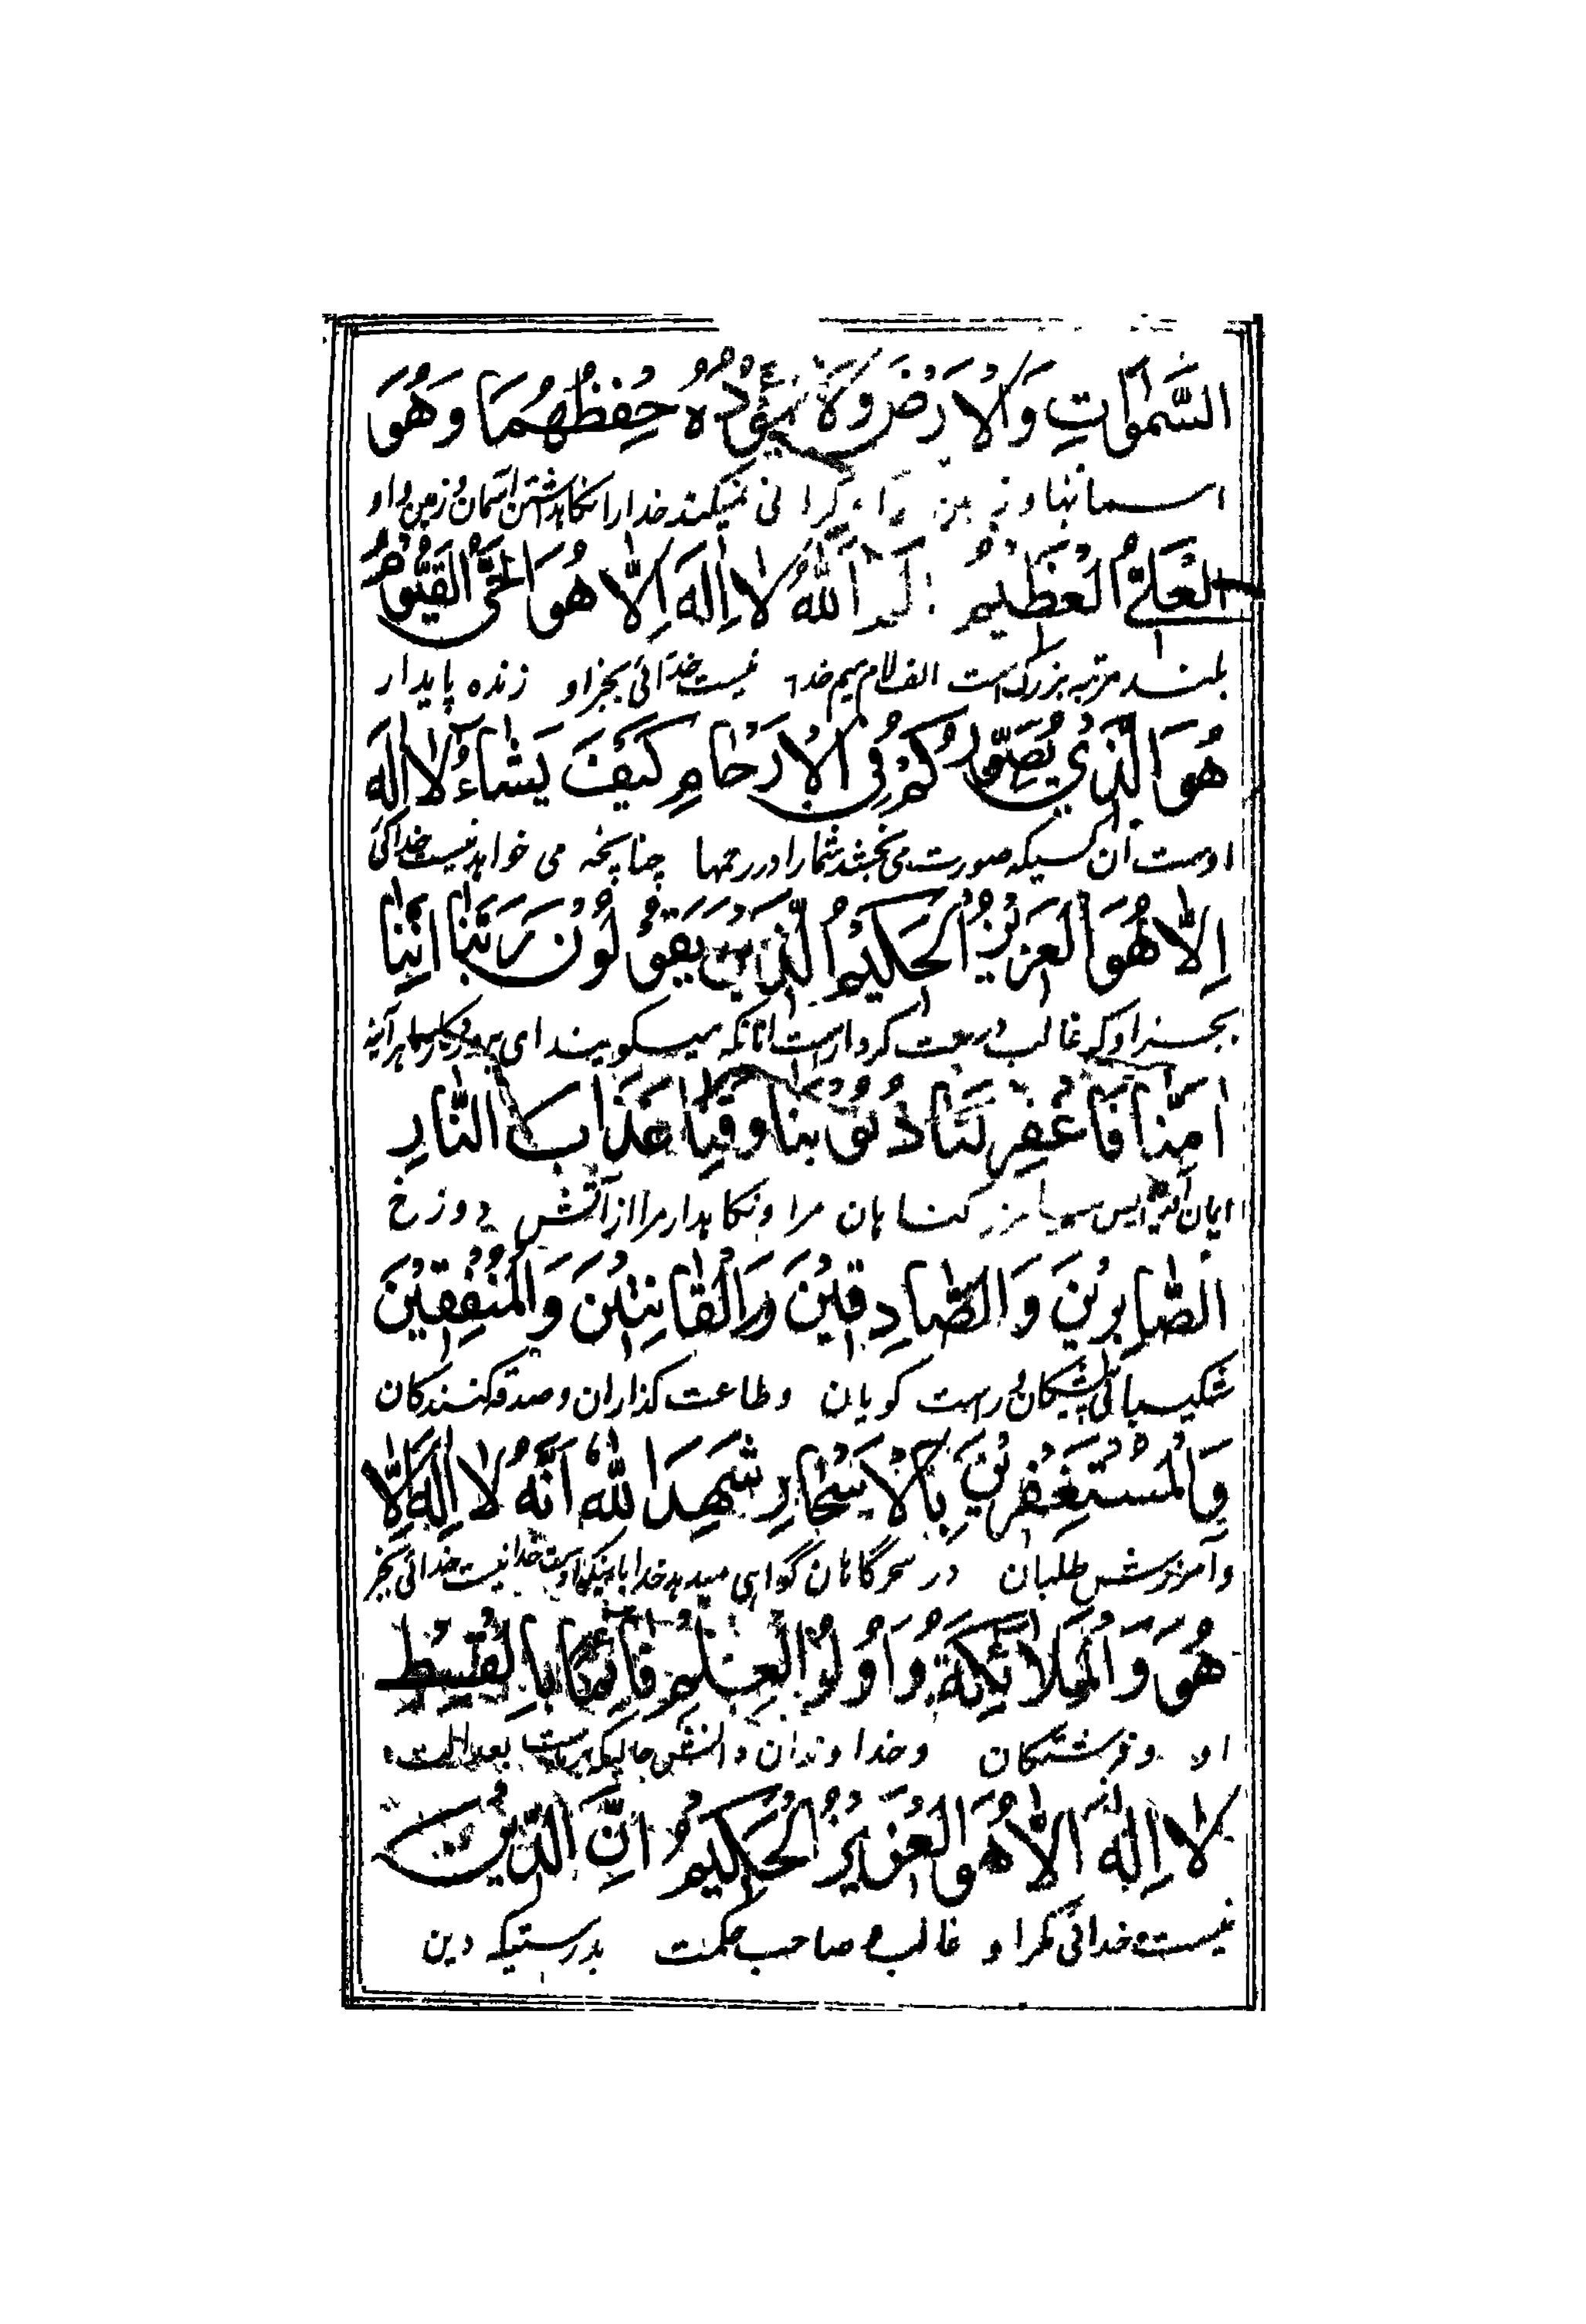 السَّمٰوَاتِ وَالْاَرْضَ وَلَا يَؤُدُهُ حِفْظُهُمَا وَهُوَ
اسمانها و زمین را و گرانی نمیکند خدا را نگاهداشتن آسمان و زمین و او
الْعَلِيُّ الْعَظِيمُ الم اَللّٰهُ لَا اِلٰهَ اِلَّا هُوَ الْحَيُّ الْقَيُّومُ
بلند مرتبه بزرگ است الف لام میم خدا نیست خدائی بجز او زنده پایدار
هُوَ الَّذِي يُصَوِّرُكُمْ فِي الْاَرْحَامِ كَيْفَ يَشَاءُ لَا اِلٰهَ
اوست آن کسیکه صورت می بخشد شما را در رحمها چنانچه می خواهد نیست خدائی
اِلَّا هُوَ الْعَزِيزُ الْحَكِيمُ الَّذِينَ يَقُولُونَ رَبَّنَا اِنَّنَا
بجز او که غالب درست کردار است انانکه میکویند ای پروردکار ما هرآینه
اٰمَنَّا فَاغْفِرْ لَنَا ذُنُوبَنَا وَقِنَا عَذَابَ النَّارِ
ایمان پس بیامرز کناهان مرا و نکاهدار مرا از آتش دوزخ
الصَّابِرِينَ وَالصَّادِقِينَ وَالْقَانِتِينَ وَالْمُنْفِقِينَ
شکیبائی پیشکان و راست کویان و طاعت کذاران و صدقه کنندکان
وَالْمُسْتَغْفِرِينَ بِالْاَسْحَارِ شَهِدَ اللّٰهُ اَنَّهُ لَا اِلٰهَ اِلَّا
و آمرزش طلبان در سحرگاهان گواهی میدهد خدا نیست خدائی بجز
هُوَ وَالْمَلَائِكَةُ وَاُولُوا الْعِلْمِ قَائِمًا بِالْقِسْطِ
او و فرشتکان و خداوندان دانش بعدالت
لَا اِلٰهَ اِلَّا هُوَ الْعَزِيزُ الْحَكِيمُ اِنَّ الدِّينَ
نیست خدائی مکر او غالب و صاحب حکمت بدرستیکه دین